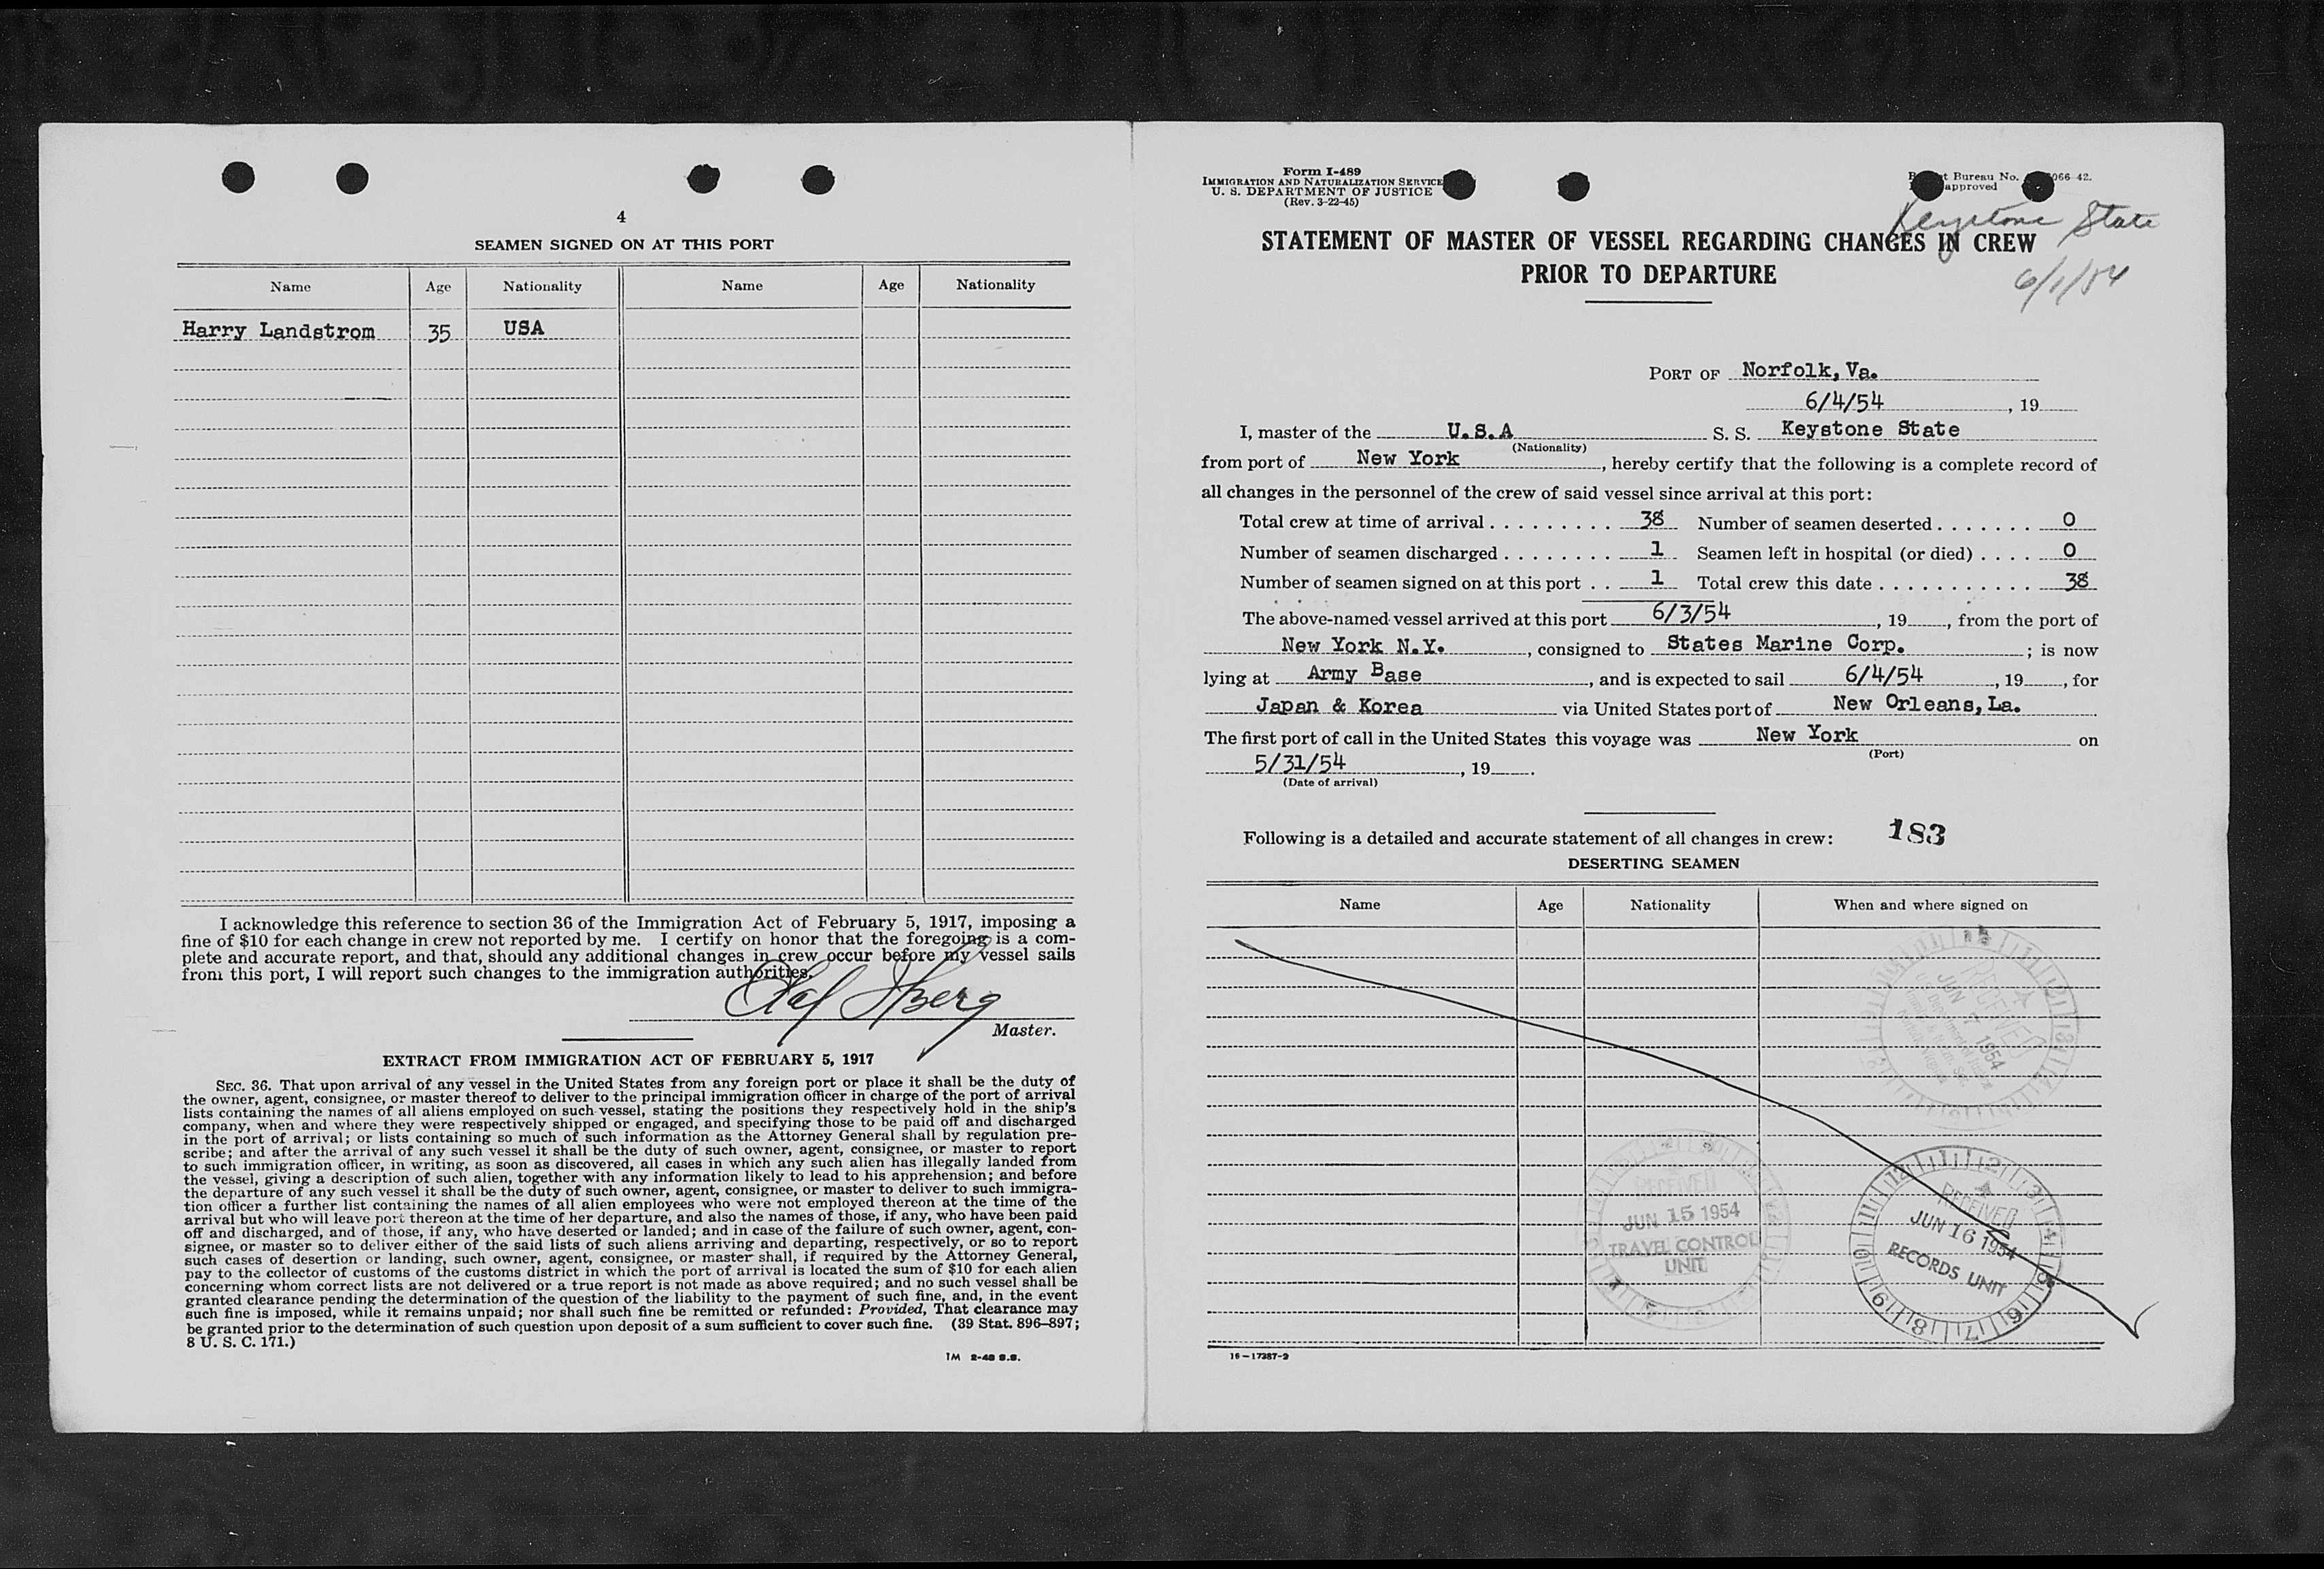 4
SEAMEN SIGNED ON AT THIS PORT
Name Age Nationality Name Age Nationality
Harry Landstrom 35 USA
I acknowledge this reference to section 36 of the Immigration Act of February 5, 1917, imposing a
fine of $10 for each change in crew not reported by me. I certify on honor that the foregoing is a com-
plete and accurate report, and that, should any additional changes in crew occur before my vessel sails
from this port, I will report such changes to the immigration authorities.
Master.
EXTRACT FROM IMMIGRATION ACT OF FEBRUARY 5, 1917
SEC. 36. That upon arrival of any vessel in the United States from any foreign port or place it shall be the duty of
the owner, agent, consignee, or master thereof to deliver to the principal immigration officer in charge of the port of arrival
lists containing the names of all aliens employed on such vessel, stating the positions they respectively hold in the ship's
company, when and where they were respectively shipped or engaged, and specifying those to be paid off and discharged
in the port of arrival; or lists containing so much of such information as the Attorney General shall by regulation pre-
scribe; and after the arrival of any such vessel it shall be the duty of such owner, agent, consignee, or master to report
to such immigration officer, in writing, as soon as discovered, all cases in which any such alien has illegally landed from
the vessel, giving a description of such alien, together with any information likely to lead to his apprehension; and before
the departure of any such vessel it shall be the duty of such owner, agent, consignee, or master to deliver to such immigra-
tion officer a further list containing the names of all alien employees who were not employed thereon at the time of the
arrival but who will leave port thereon at the time of her departure, and also the names of those, if any, who have been paid
off and discharged, and of those, if any, who have deserted or landed; and in case of the failure of such owner, agent, con-
signee, or master so to deliver either of the said lists of such aliens arriving and departing, respectively, or so to report
such cases of desertion or landing, such owner, agent, consignee, or master shall, if required by the Attorney General,
pay to the collector of customs of the customs district in which the port of arrival is located the sum of $10 for each alien
concerning whom correct lists are not delivered or a true report is not made as above required; and no such vessel shall be
granted clearance pending the determination of the question of the liability to the payment of such fine, and, in the event
such fine is imposed, while it remains unpaid; nor shall such fine be remitted or refunded: Provided, That clearance may
be granted prior to the determination of such question upon deposit of a sum sufficient to cover such fine. (39 Stat. 896–897;
8 U. S. C. 171.)
1M 2-48 S.S.
Form I-489
IMMIGRATION AND NATURALIZATION SERVICE
U. S. DEPARTMENT OF JUSTICE
(Rev. 3-22-45)
Bureau No. 066-42.
approved
Keystone State
6/1/54
STATEMENT OF MASTER OF VESSEL REGARDING CHANGES IN CREW
PRIOR TO DEPARTURE
PORT OF Norfolk, Va.
6/4/54, 19
I, master of the U.S.A S. S. Keystone State
(Nationality)
from port of New York, hereby certify that the following is a complete record of
all changes in the personnel of the crew of said vessel since arrival at this port:
Total crew at time of arrival . . . . . . . . . 38 Number of seamen deserted . . . . . . . 0
Number of seamen discharged . . . . . . . . 1 Seamen left in hospital (or died) . . . . 0
Number of seamen signed on at this port . . 1 Total crew this date . . . . . . . . . . . 38
The above-named vessel arrived at this port 6/3/54, 19, from the port of
New York N.Y., consigned to States Marine Corp.; is now
lying at Army Base, and is expected to sail 6/4/54, 19, for
Japan & Korea via United States port of New Orleans, La.
The first port of call in the United States this voyage was New York on
(Port)
5/31/54, 19.
(Date of arrival)
Following is a detailed and accurate statement of all changes in crew: 183
DESERTING SEAMEN
Name Age Nationality When and where signed on
RECEIVED
JAN 7 1954
RECEIVED
JUN 15 1954
TRAVEL CONTROL
UNIT
RECEIVED
JUN 16 1954
RECORDS UNIT
1 2 3 4 5 6 7 8 9 10 11 12
16—17387-2